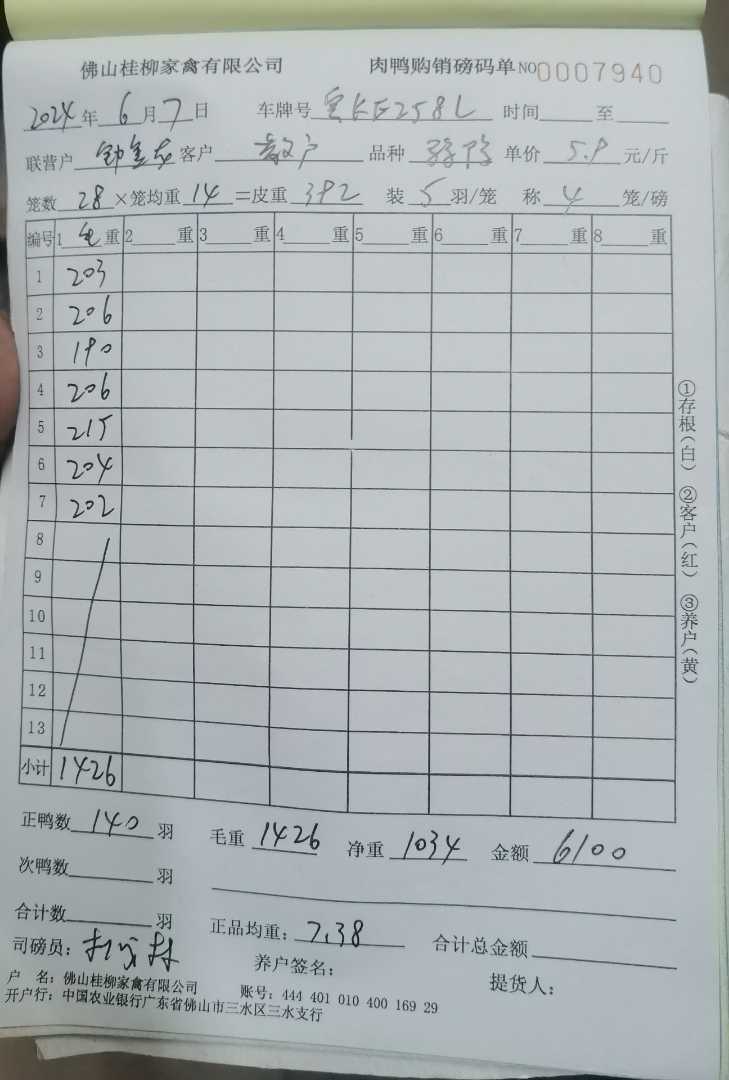 佛山桂柳家禽有限公司 肉鸭购销磅码单 NO 0007940
2024年 6月7日 车牌号 KF258L 时间 至
联营户 客户 散户 品种 单价 5.9 元/斤
笼数 28 ×笼均重 14 =皮重 392 装 5 羽/笼 称 4 笼/磅
编号 1 毛 重 2 重 3 重 4 重 5 重 6 重 7 重 8 重
1 203
2 206
3 190
4 206
5 215
6 204
7 202
8
9
10
11
12
13
小计 1426
①存根(白) ②客户(红) ③养户(黄)
正鸭数 140 羽 毛重 1426 净重 1034 金额 6100
次鸭数 羽
合计数 羽 正品均重: 7.38 合计总金额
司磅员: 养户签名: 提货人:
户 名: 佛山桂柳家禽有限公司 账号: 444 401 010 400 169 29
开户行: 中国农业银行广东省佛山市三水区三水支行